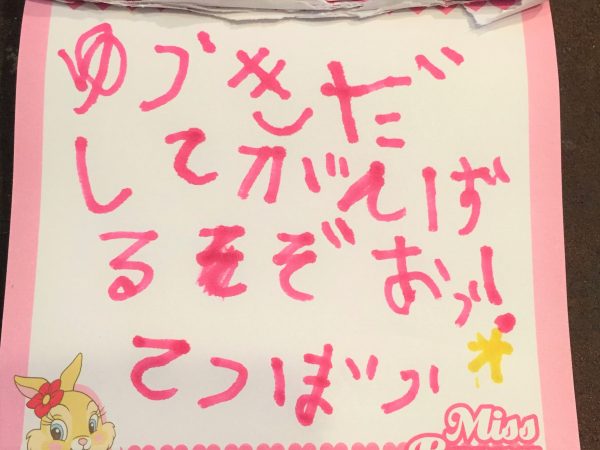 ゆうきだ
してがんば
るそぞおう!
てつぼう
Miss